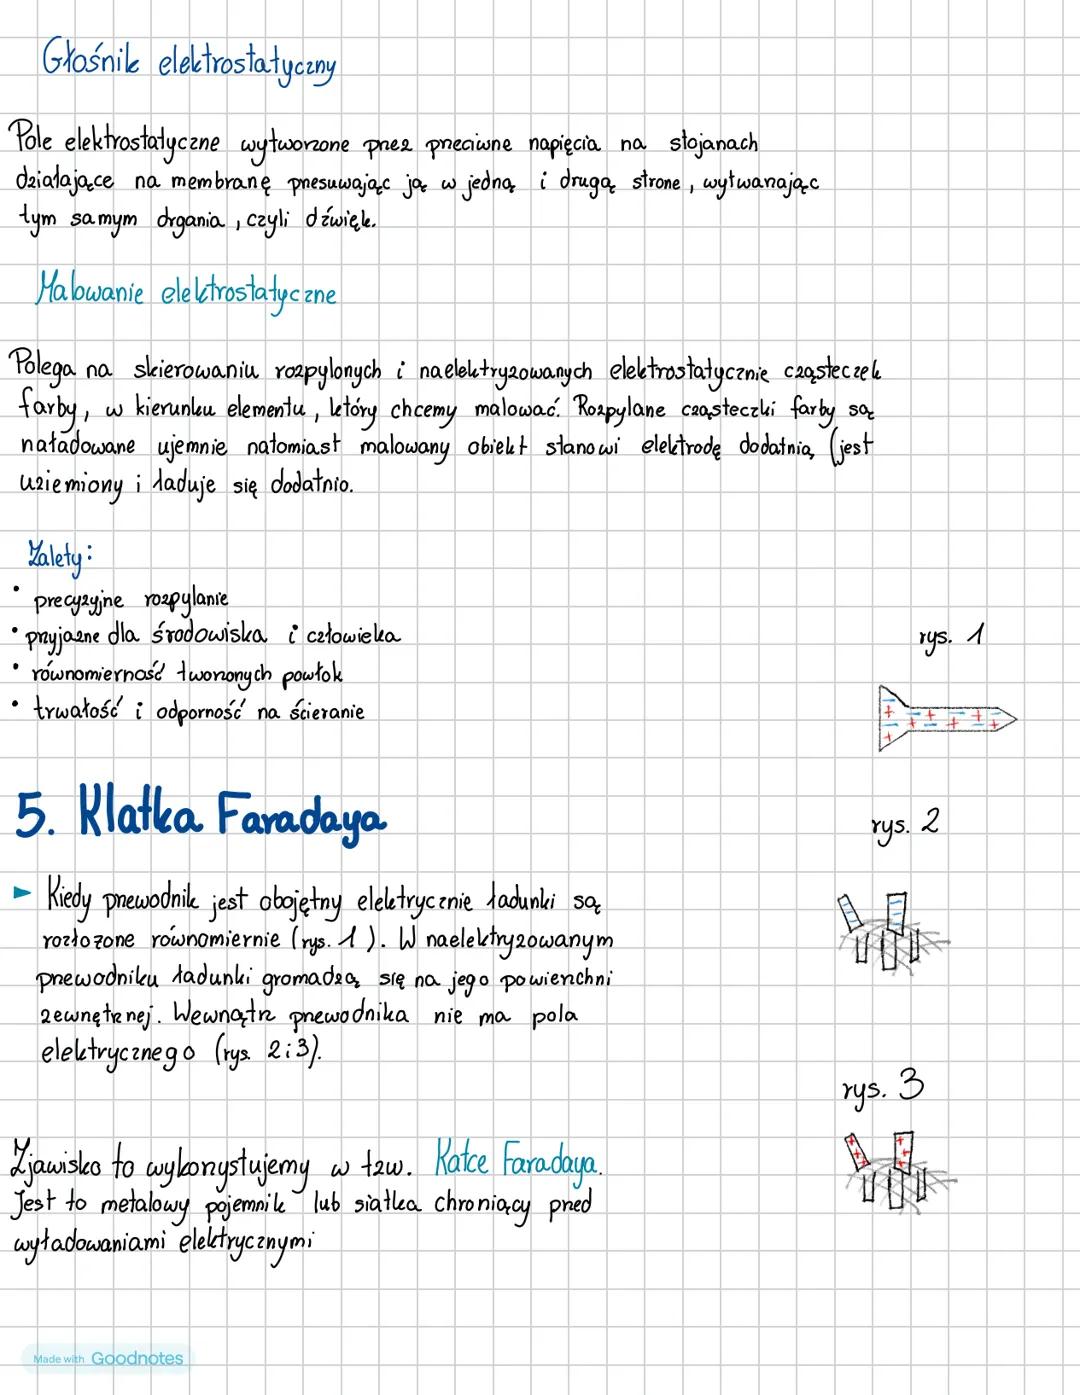 Głośnik elektrostatyczny
Pole elektrostatyczne wytworzone przez przeciwne napięcia na stojanach
działające na membranę przesuwając ją w jedną i drugą strone, wytwarzając
tym samym drgania, czyli dźwięk.
Malowanie elektrostatyczne
Polega na skierowaniu rozpylonych i naelektryzowanych elektrostatycznie cząsteczek
farby, w kierunku elementu, który chcemy malować. Rozpylane cząsteczki farby są
naładowane ujemnie natomiast malowany obiekt stanowi elektrodę dodatnią (jest
uziemiony i ładuje się dodatnio.
Zalety:
• precyzyjne rozpylanie
• przyjazne dla środowiska i człowieka
rys. 1
• równomierność tworzonych powłok
• trwałość i odporność na ścieranie
5. Klatka Faradaya
rys. 2
► Kiedy przewodnik jest obojętny elektrycznie ładunki są
rozłożone równomiernie (rys. 1). W naelektryzowanym
przewodniku ładunki gromadzą się na jego powierzchni
zewnętrznej. Wewnątrz przewodnika nie ma pola
elektrycznego (rys. 2i3).
rys. 3
Zjawisko to wykorzystujemy w tzw. Katce Faradaya.
Jest to metalowy pojemnik lub siatka chroniący przed
wyładowaniami elektrycznymi
Made with Goodnotes